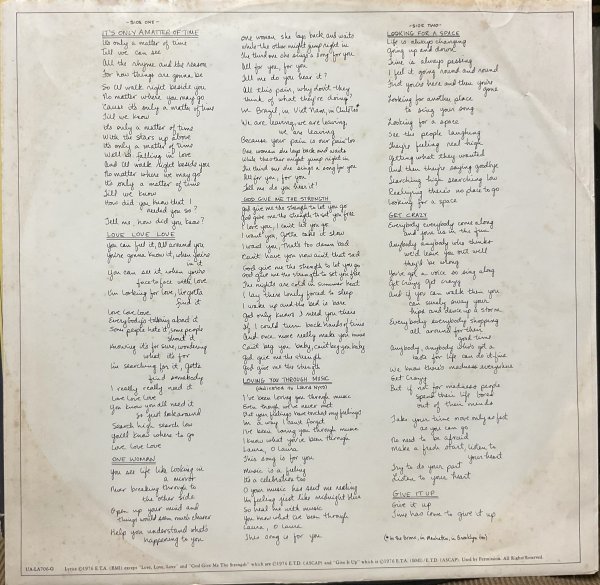 - SIDE ONE -
IT'S ONLY A MATTER OF TIME
It's only a matter of time
Till we can see
All the rhyme and the reason
For how things are gonna be
So I'll walk right beside you
No matter where you may go
'Cause it's only a matter of time
Till we know
It's only a matter of time
With the stars up above
It's only a matter of time
Well it's falling in love
And I'll walk right beside you
No matter where we may go
It's only a matter of time
Till we know
How did you know that I
needed you so?
Tell me, how did you know?
LOVE LOVE LOVE
You can feel it, all around you
You're gonna know it, when you're
in it
You can see it, when you're
face to face with love
I'm looking for love, I've gotta
find it
Love Love Love
Everybody's talking about it
Some people hate it, some people
shout it
Knowing it's for sure, wondering
what it's for
I'm searching for it, gotta
find somebody
I really really need it
Love Love Love
You know you all need it
so just look around
Search high search low
You'll know where to go
Love Love Love
ONE WOMAN
You see life like looking in
a mirror
Never breaking through to
the other side
Open up your mind and
things would seem much clearer
Help you understand what's
happening to you
One woman she lays back and waits
while the other might jump right in
The third one she sings a song for you
All for you, for you
Tell me do you hear it?
All this pain, why don't they
think of what they're doing?
In Brazil, in Viet Nam, in Chile too*
We are leaving, we are leaving,
we are leaving
Because your pain is our pain too
One woman she lays back and waits
while the other might jump right in
The third one she sings a song for you
All for you, for you
Tell me do you hear it?
GOD GIVE ME THE STRENGTH
God give me the strength to let you go
God give me the strength to set you free
I love you, I can't let you go
I want you, Gotta take it slow
I want you, That's too damn bad
Can't have you now ain't that sad
God give me the strength to let you go
God give me the strength to set you free
The nights are cold in summer heat
I lay there lonely forced to sleep
I wake up and the bed is bare
God only knows I need you there
If I could turn back hands of time
And once more really make you mine
Can't beg you baby, can't beg you baby
God give me the strength
God give me the strength
LOVING YOU THROUGH MUSIC
(dedicated to Laura Nyro)
I've been loving you through music
Even though we've never met
But your feelings have touched my feelings
In a way I can't forget
I've been loving you through music
I know what you've been through
Laura, O Laura
This song is for you
Music is a feeling
It's a celebration too
O your music has sent me reeling
I'm feeling just like midnight blue
So heal me with music
You know what I've been through
Laura, O Laura
This song is for you
- SIDE TWO -
LOOKING FOR A SPACE
Life is always changing
Going up and down
Time is always passing
I feel it going round and round
First you're here and then you're
gone
Looking for another place
to sing your song
Looking for a space
See the people laughing
They're feeling real high
Getting what they wanted
And then they're saying goodbye
Searching high searching low
Realizing there's no place to go
Looking for a space
GET CRAZY
Everybody everybody come along
and join us in the fun
Anybody anybody who thinks
we'd leave you out well
they'd be wrong
You've got a voice so sing along
Get crazy Get crazy
And if you can walk then you
can surely swing your
hips and dance up a storm
Every body everybody stepping
all around for their
good time
Anybody, anybody who's got a
taste for life can do it fine
We know there's madness everywhere
Get Crazy
But if not for madness people
spend their life bored
out of their minds
Take your time move only as fast
as you can go
No need to be afraid
Make a fresh start, listen to
your heart
Try to do your part
Listen to your heart
GIVE IT UP
Give it up
Time has come to give it up
(* in the Bronx, in Manhattan, in Brooklyn too)
UA-LA706-G Lyrics ©1976 E.T.A. (BMI) except "Love, Love, Love" and "God Give Me The Strength" which are ©1976 E.T.D. (ASCAP) and "Give It Up" which is ©1976 E.T.A. (BMI)/E.T.D. (ASCAP). Used by Permission. All Rights Reserved.